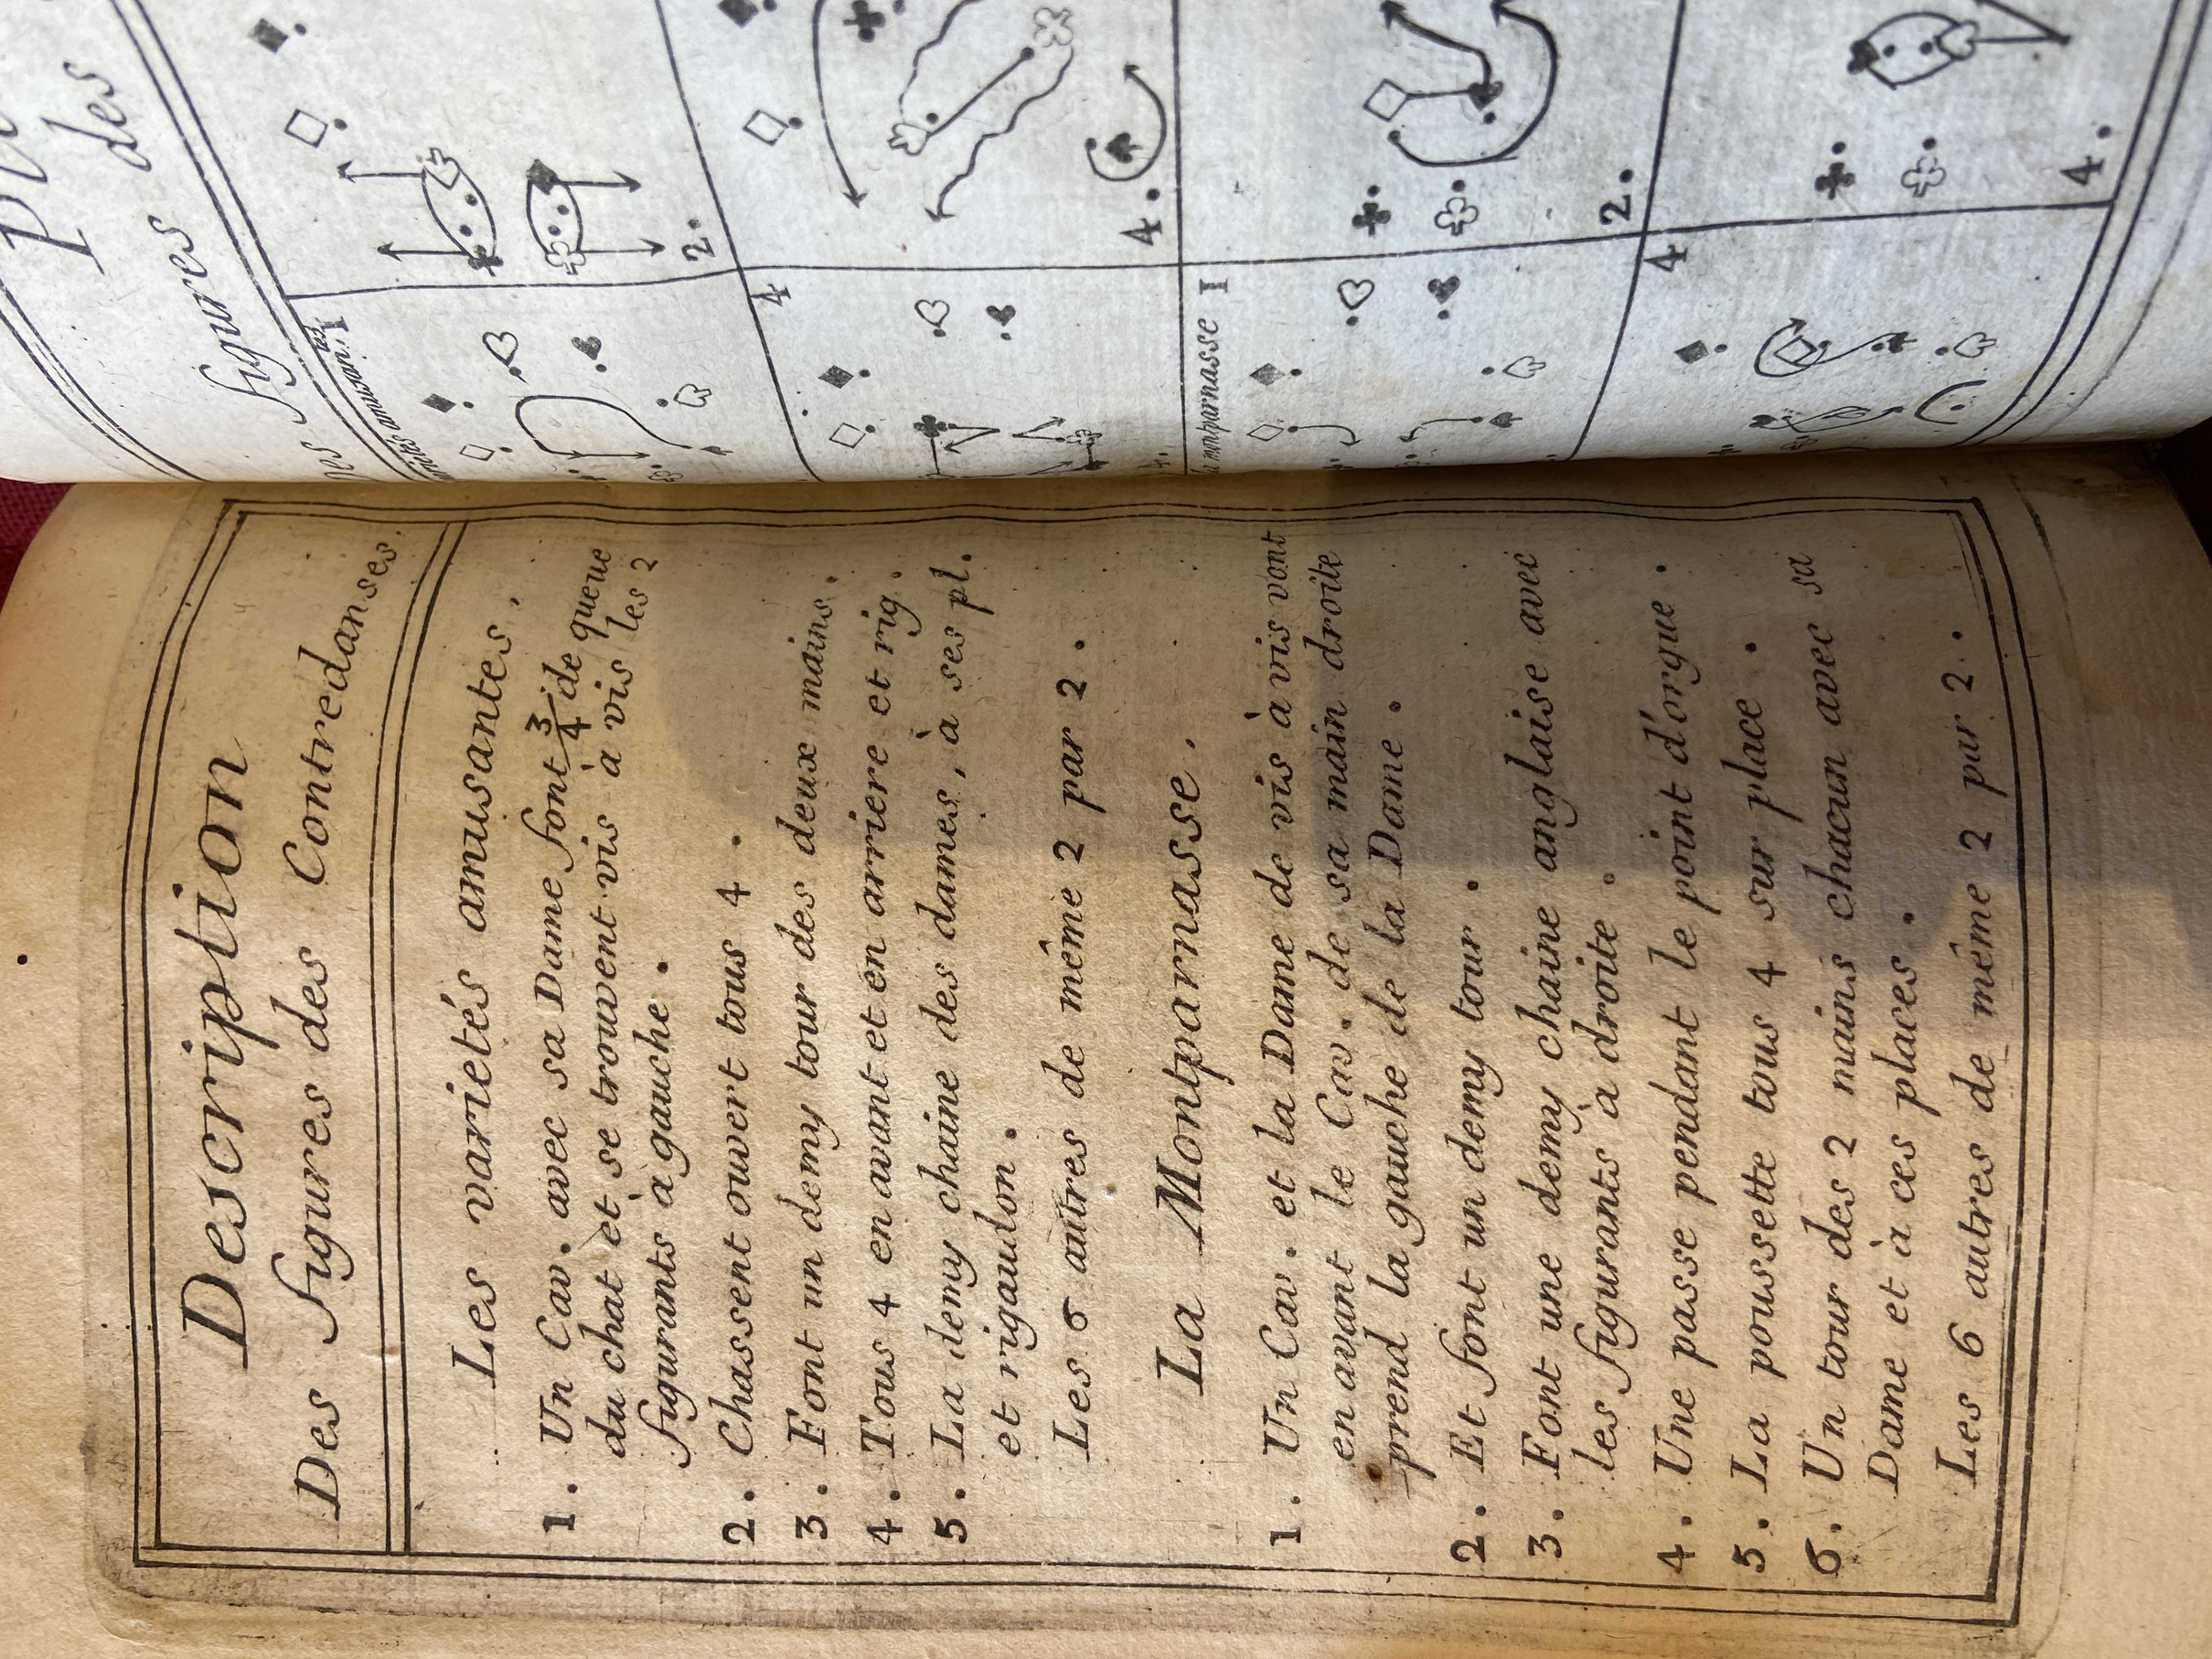 Description
Des figures des Contredanses.
Les varietés amusantes.
1. Un Cav. avec sa Dame font 3/4 de queue
du chat et se trouvent vis à vis les 2
figurants à gauche.
2. Chassent ouvert tous 4.
3. Font un demy tour des deux mains.
4. Tous 4 en avant et en arriere et rig.
5. La demy chaine des dames, à ses pl.
et rigaudon.
Les 6 autres de même 2 par 2.
La Montparnasse.
1. Un Cav. et la Dame de vis à vis vont
en avant le Cav. de sa main droite
prend la gauche de la Dame.
2. Et font un demy tour.
3. Font une demy chaine anglaise avec
les figurants à droite.
4. Une passe pendant le point d'orgue.
5. La poussette tous 4 sur place.
6. Un tour des 2 mains chacun avec sa
Dame et à ces places.
Les 6 autres de même 2 par 2.
figures des
1
2.
4
4.
la montparnasse 1
2.
4
4.